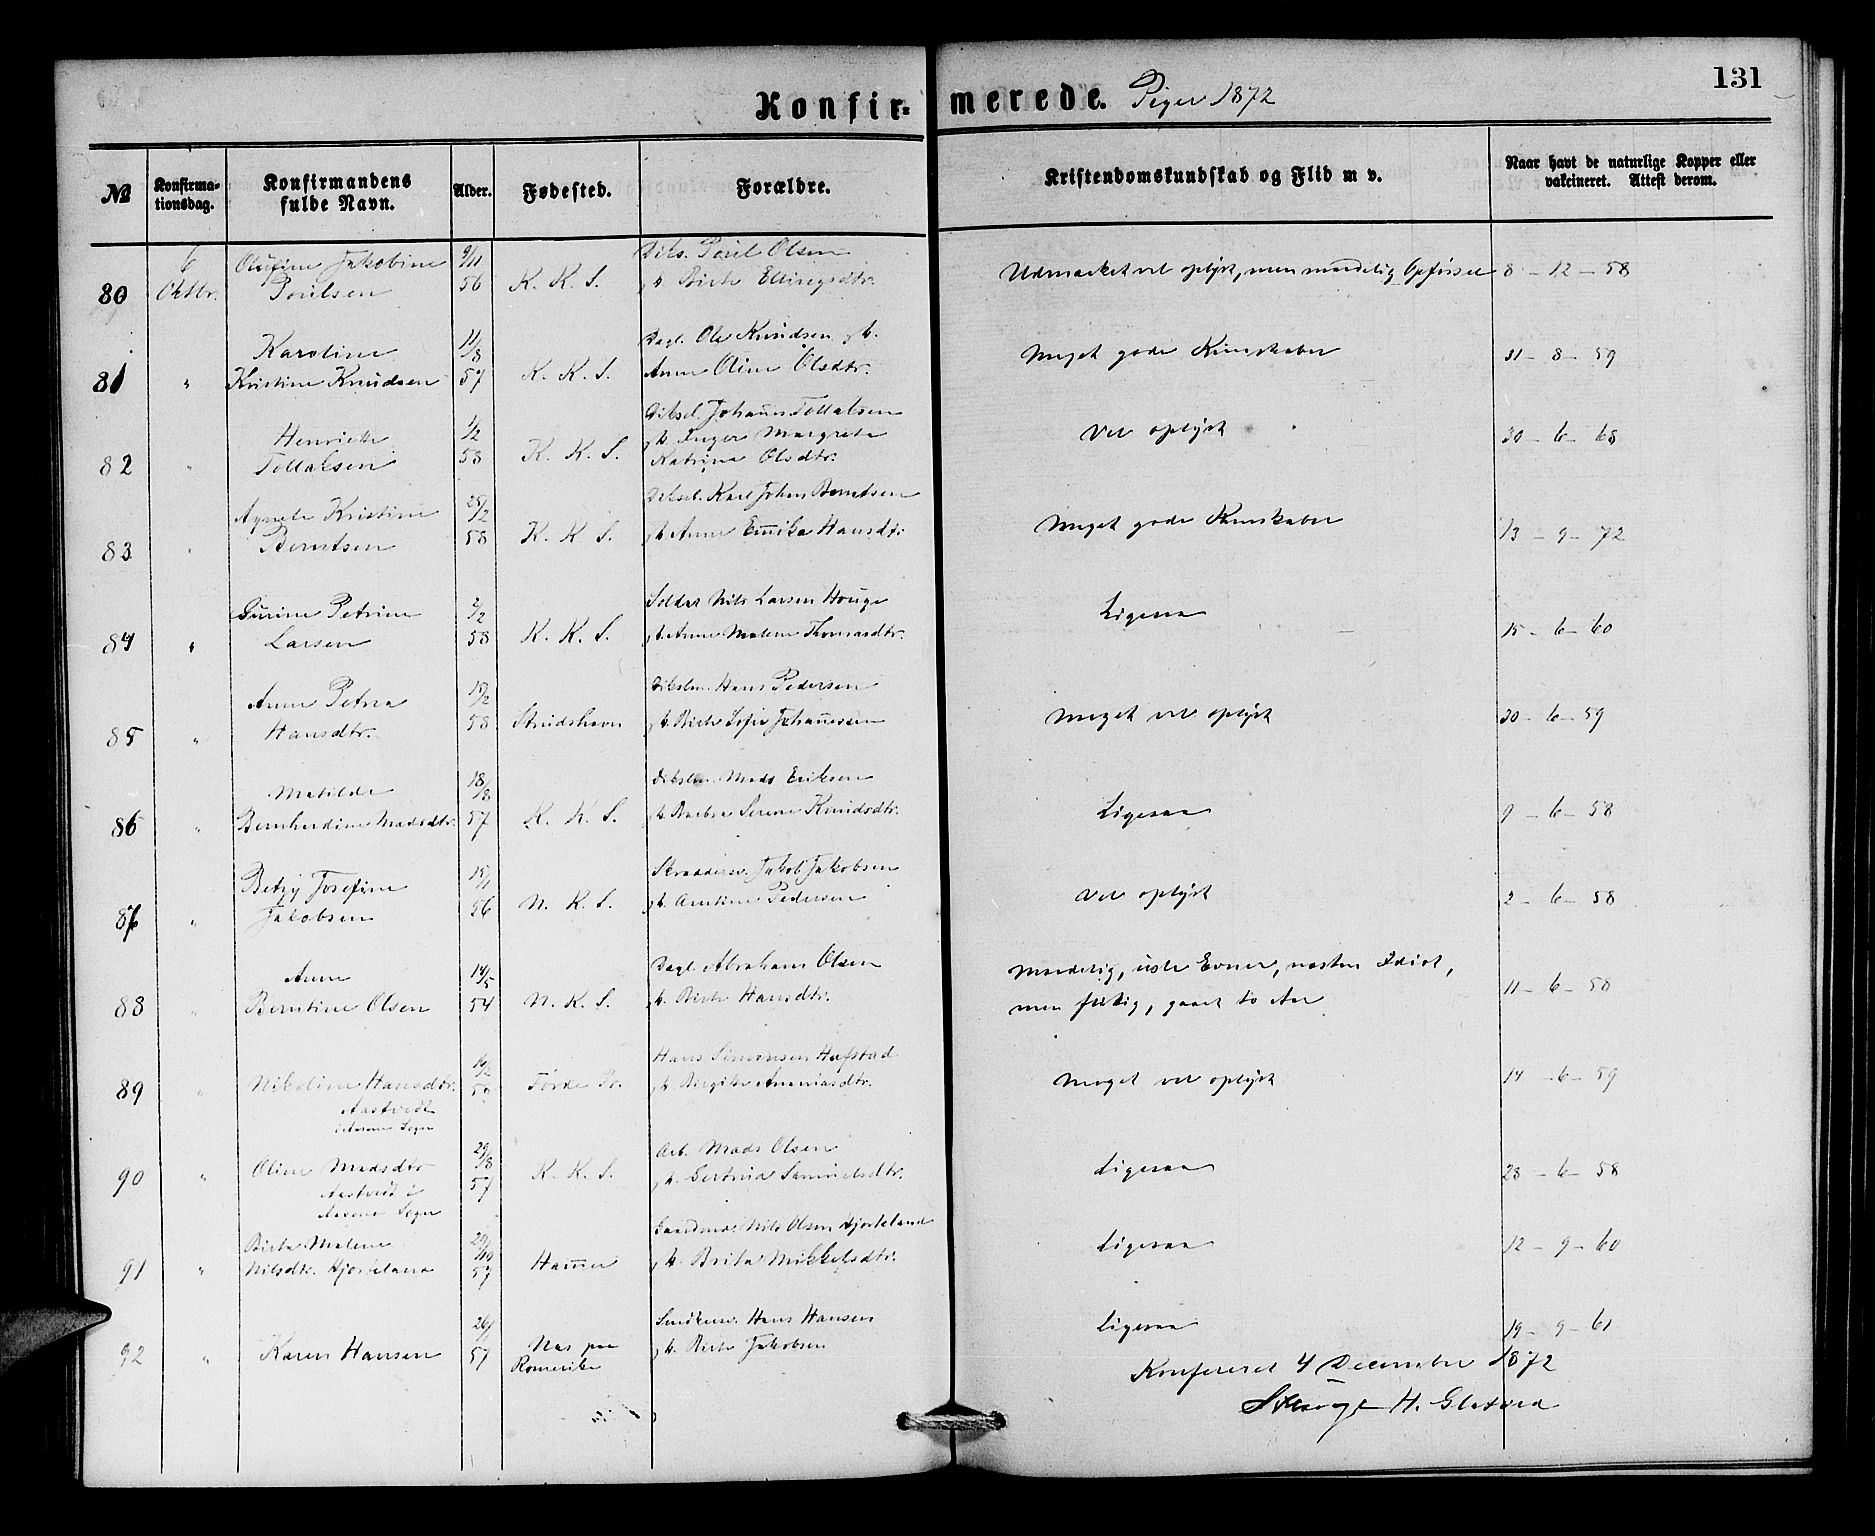 131
Konfir- merede. Piger 1872
№ Konfirma-tionsdag. Konfirmandens fulde Navn. Alder. Fødested. Forældre. Kristendomskundskab og Flid m v. Naar havt de naturlige Kopper eller vakcineret. Attest derom.
80 6 Oktbr. Olufine Jakobine Poulsen 9/11 56 K. K. S. Poul Olsen Birte Ellingsdtr. Udmærket vel oplyst, men maadelig Opførsel 8 - 12 - 58
81 " Karoline Kristine Knudsen 11/8 57 K. K. S. Dagl. Ole Knudsen g h. Anne Oline Olsdtr. Meget gode Kunskaber 31 - 8 - 59
82 " Henriette Tollaksen 1/2 58 K. K. S. Johannes Tollaksen g h. Inger Margrete Katrine Olsdtr. Vel oplyst 30 - 6 - 68
83 " Agnete Kristine Berntsen 25/2 58 K. K. S. Karl Johan Berntsen g h. Anne Emilie Hansdtr. Meget gode Kunskaber 13 - 9 - 72
84 " Gurine Petrine Larsen 2/2 58 K. K. S. Soldat Nils Larsen Houge g h. Anne Malene Thomasdtr. Ligesaa 15 - 6 - 60
85 " Anne Petrea Hansdtr. 15/2 58 Strudshavn Hans Pedersen g h. Birte Sofie Johannessen Meget vel oplyst 30 - 6 - 59
86 " Matilde Bernherdine Madsdtr. 18/8 57 K. K. S. Mads Eriksen g h. Barbra Serene Knudsdtr. Ligesaa 9 - 6 - 58
87 " Betzy Josefine Jakobsen 15/1 56 N. K. S. Jakob Jakobsen g h. Pedersen Vel oplyst 2 - 6 - 58
88 " Anne Berntine Olsen 14/5 54 N. K. S. Dagl. Abraham Olsen g h. Birte Hansdtr. Maadelig, usle Evner, næsten Idiot,
men flittig, gaaet to Aar 11 - 6 - 58
89 " Nikoline Hansdtr. Aastvedt Aasene Sogn 14/2 58 Førde Hans Simonsen Hafstad g h. Birgitte Ananiasdtr. Meget vel oplyst 14 - 6 - 59
90 " Oline Madsdtr Aastvedt i Aasene Sogn 29/8 57 K. K. S. Arb. Mads Olsen g h. Gertrud Samuelsdtr. Ligesaa 28 - 6 - 58
91 " Birte Malene Nilsdtr. Hjorteland 29/10 57 Hammer Gaardmd. Nils Olsen Hjorteland g h. Brita Mikkelsdtr. Ligesaa 12 - 9 - 60
92 " Karen Hansen 26/1 57 Næs paa Romerike Snedkersv. Hans Hansen g h. Birte Jakobsen Ligesaa 19 - 9 - 61
Konfereret 4 December 1872
H.